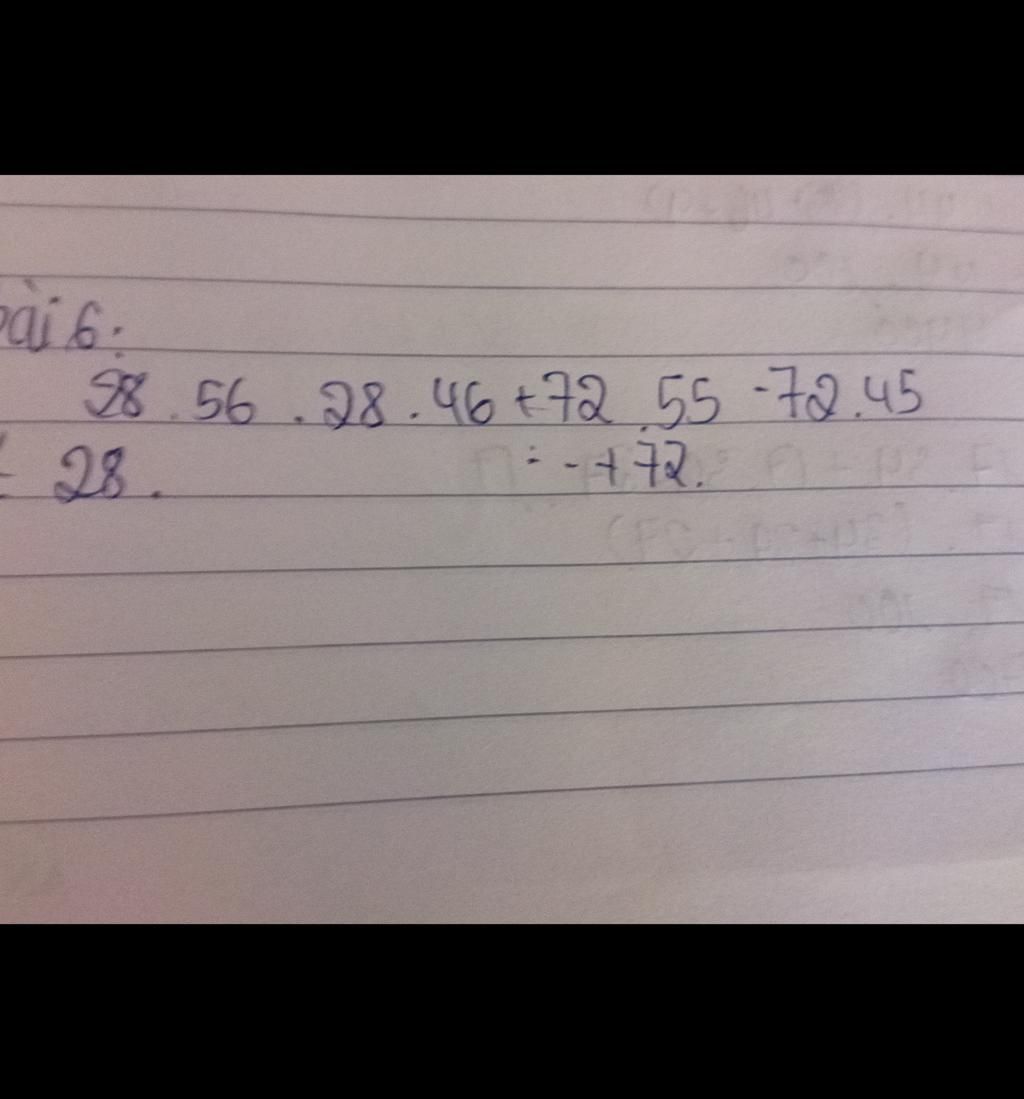 bài 6:
28 . 56 . 28 . 46 + 72 . 55 - 72 . 45
= 28 . = - + 72.